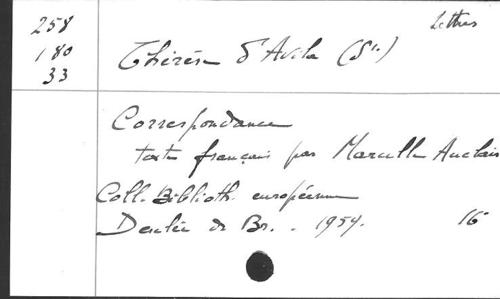 258
180
33
Lettres
Thérèse d'Avila (Ste)
Correspondance
texte français par Marcelle Auclair
Coll. Biblioth. européenne
Desclée de Br. . 1959. 16°